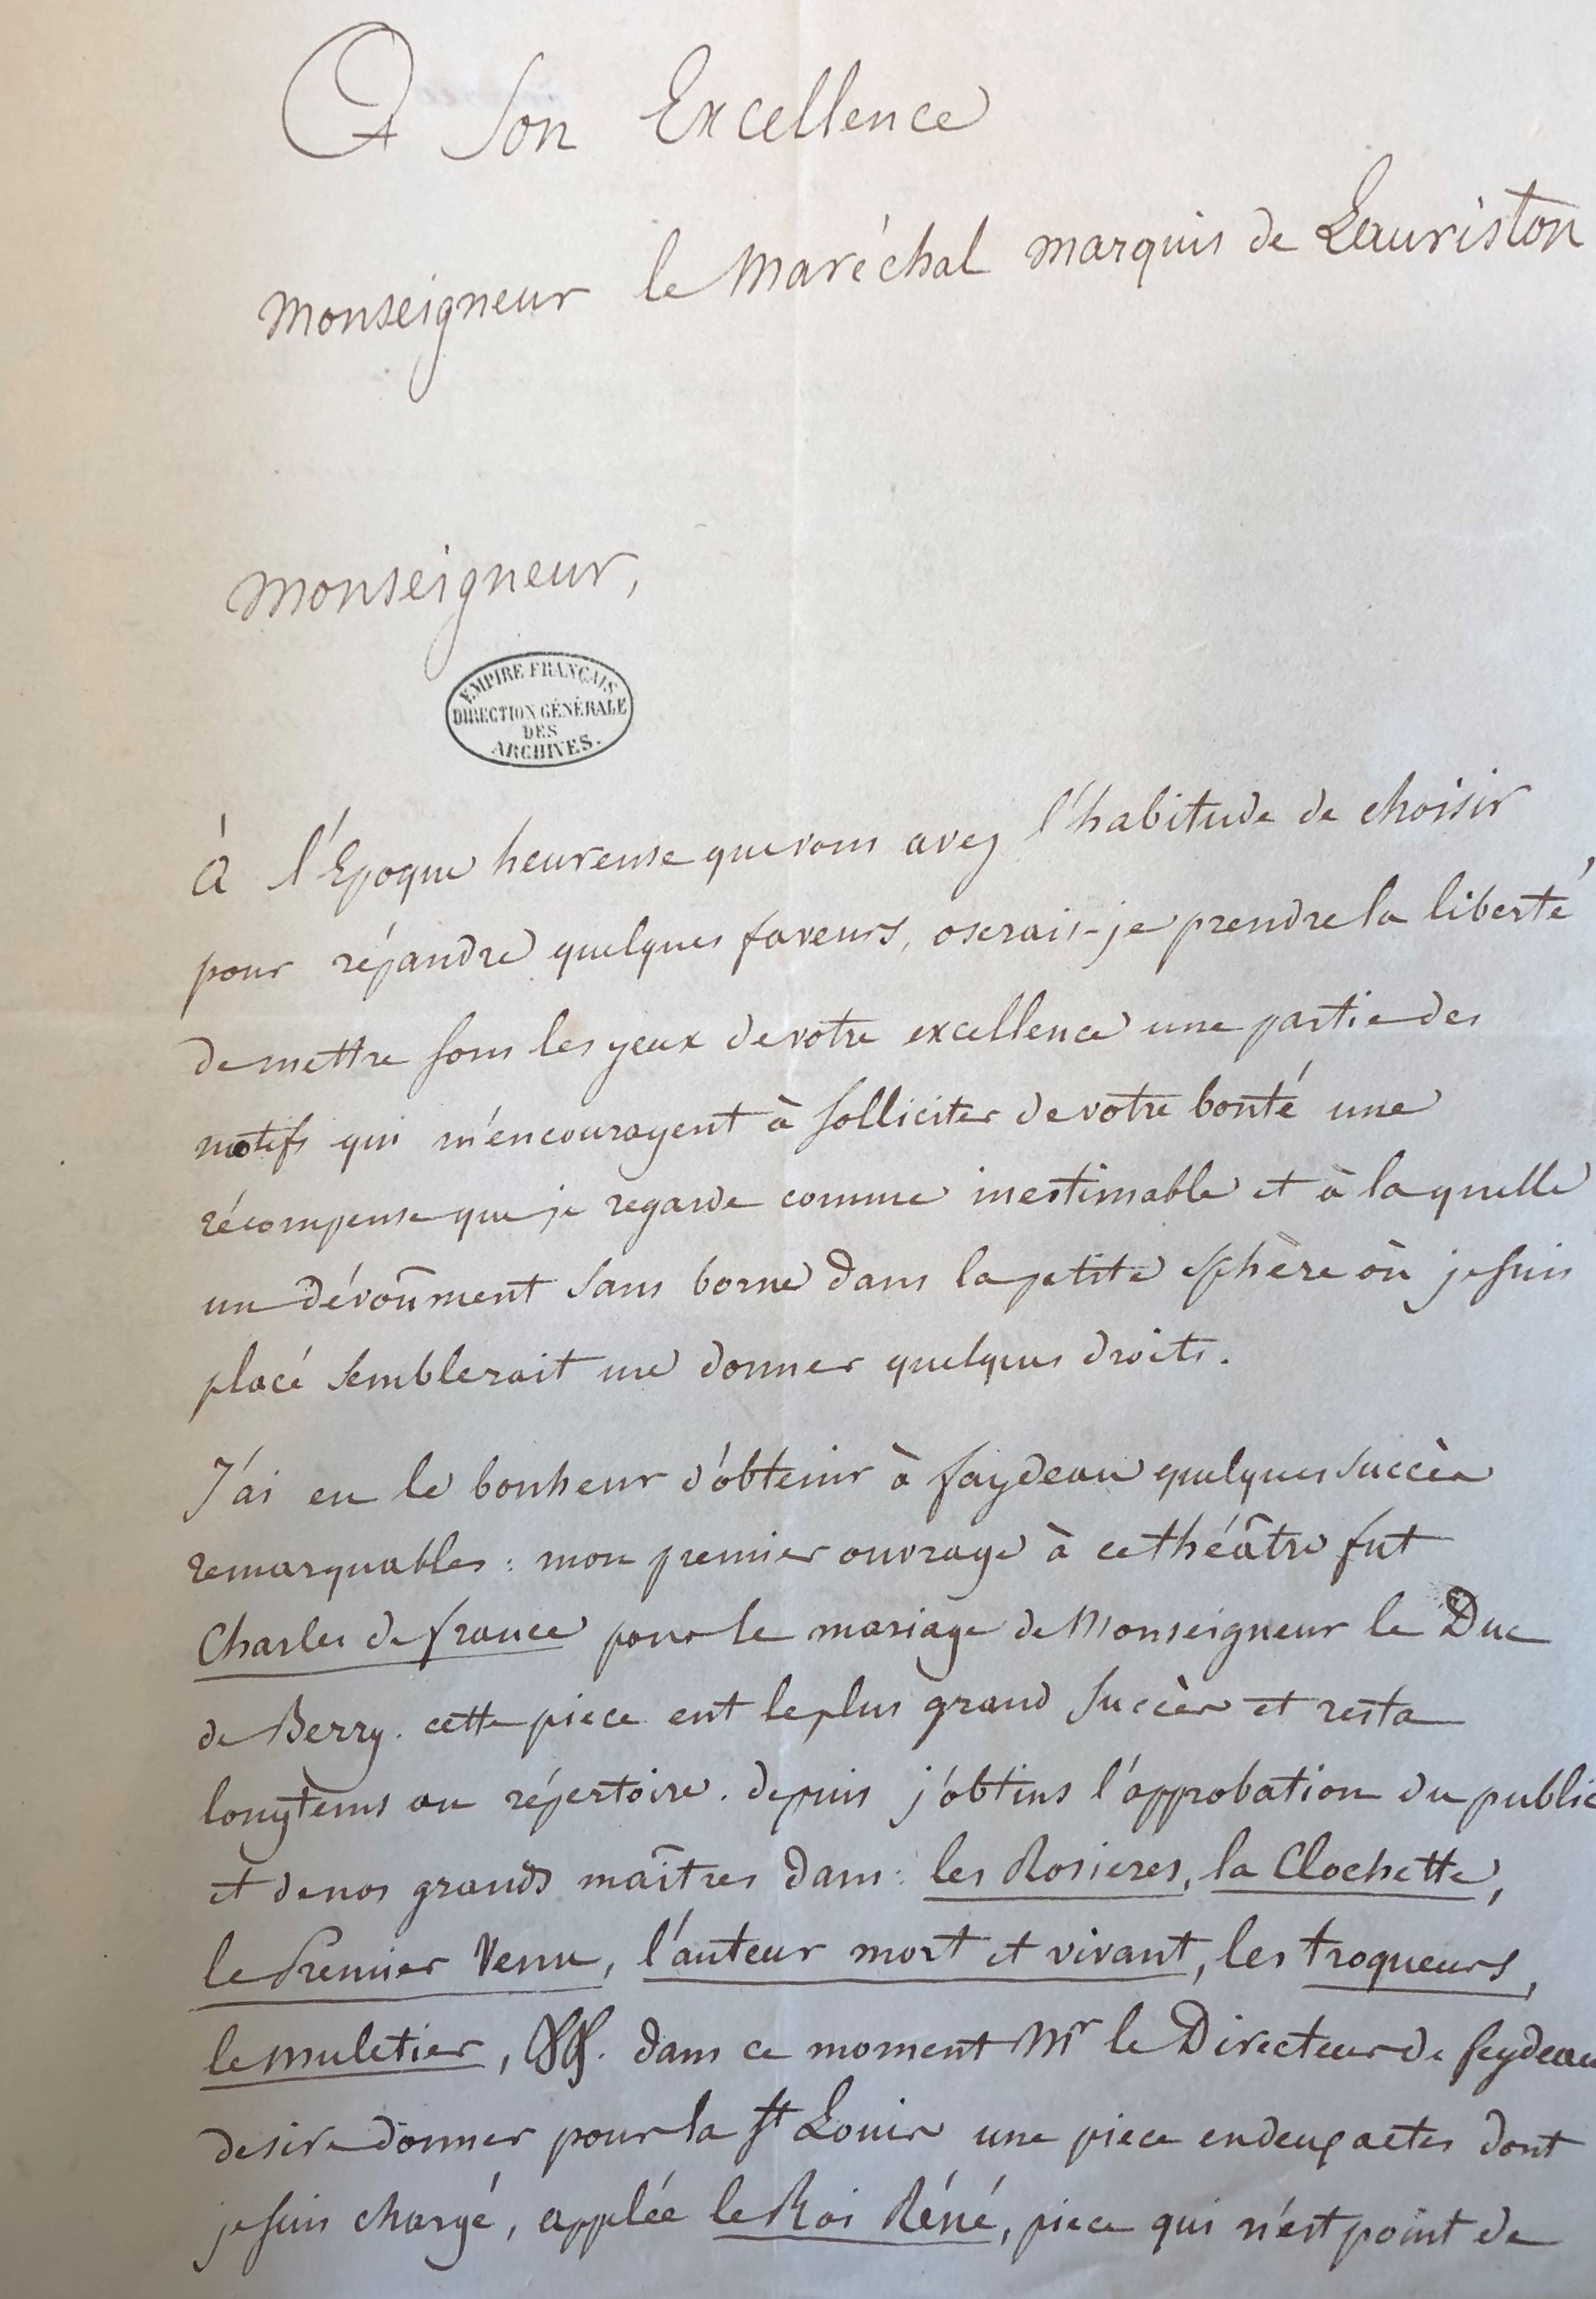 A Son Excellence
Monseigneur le Maréchal Marquis de Lauriston
Monseigneur,
EMPIRE FRANÇAIS
DIRECTION GÉNÉRALE
DES
ARCHIVES.
à l'Epoque heureuse que vous avez l'habitude de choisir
pour répandre quelques faveurs, oserais-je prendre la liberté
de mettre sous les yeux de votre excellence une partie des
motifs qui m'encouragent à solliciter de votre bonté une
récompense que je regarde comme inestimable et à la quelle
un dévoûment sans borne dans la petite sphère où je suis
placé semblerait me donner quelques droits.
J'ai eu le bonheur d'obtenir à faydeau quelques succès
remarquables : mon premier ouvrage à ce théâtre fut
Charles de france pour le mariage de Monseigneur le Duc
de Berry. cette piece eut le plus grand succès et resta
longtems au répertoire. depuis j'obtins l'approbation du public
et de nos grands maîtres dans : les Rosieres, la Clochette,
le Premier Venu, l'auteur mort et vivant, les troqueurs,
le muletier, dans ce moment Mr le Directeur de feydeau
desire donner pour la St Louis une piece en deux actes dont
je suis chargé, applée le Roi Réné, piece qui n'est point de